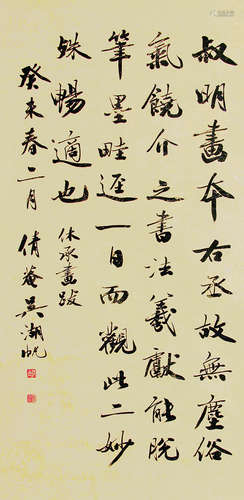 叔明畫本右丞故無塵俗
氣饒介之書法羲獻能脫
筆墨畦逕一日而觀此二妙
殊暢適也 休承畫跋
癸未春二月 倩菴吳湖帆